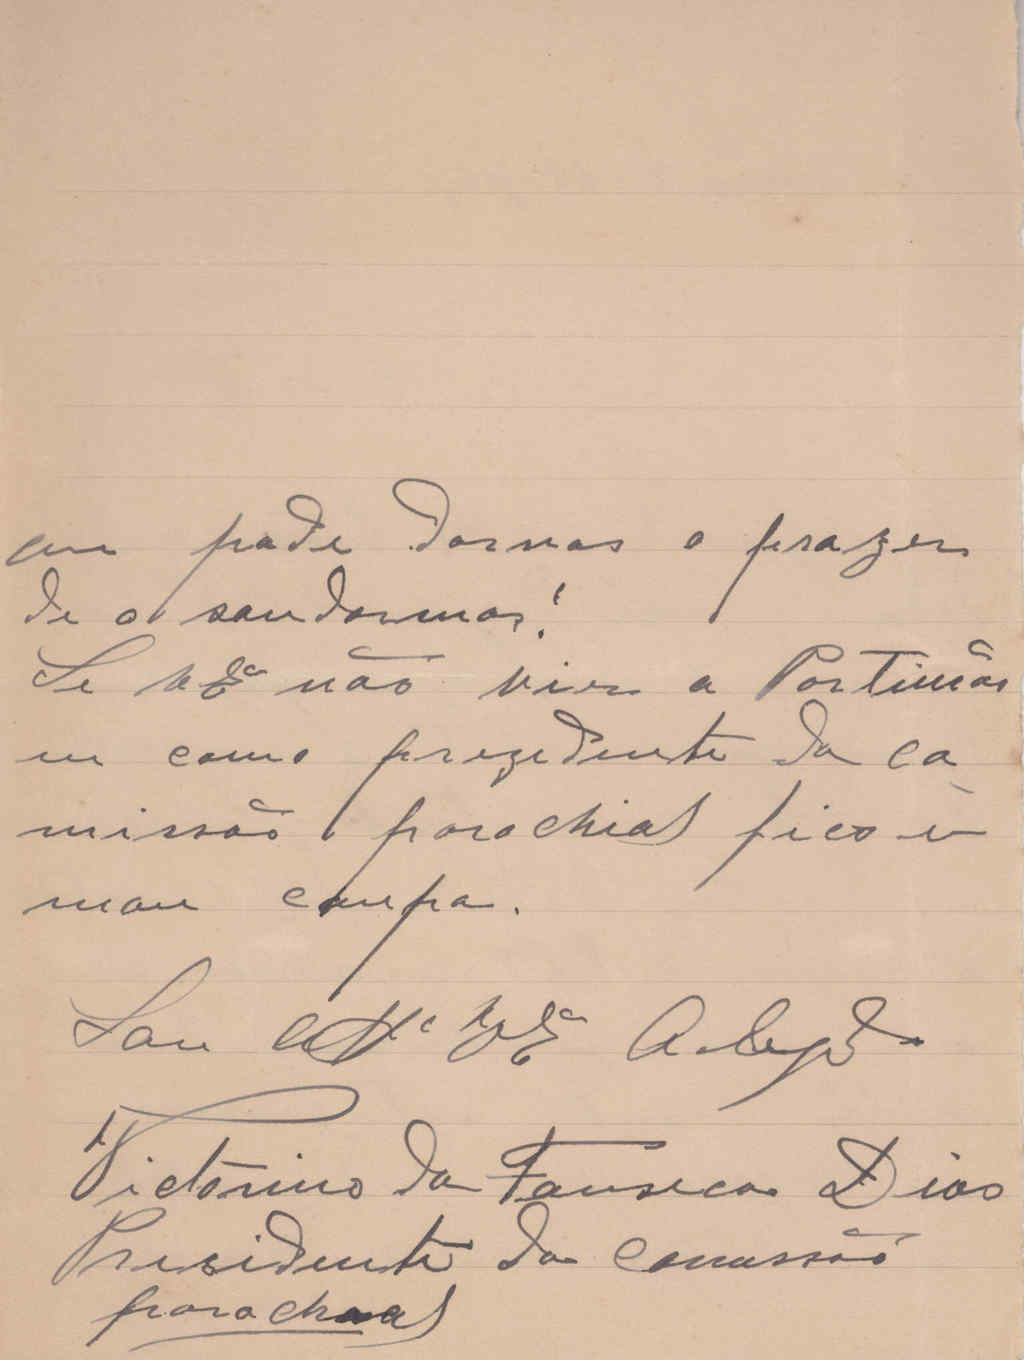 em pode darnos o prazer
de o saudarmos!
Se V. Exª não vier a Portimão
eu como prezidente da co
missão parochial fico em
mau campa.
Sou
Victorino da Fonseca Dias
Presidente da Comissão
parochial